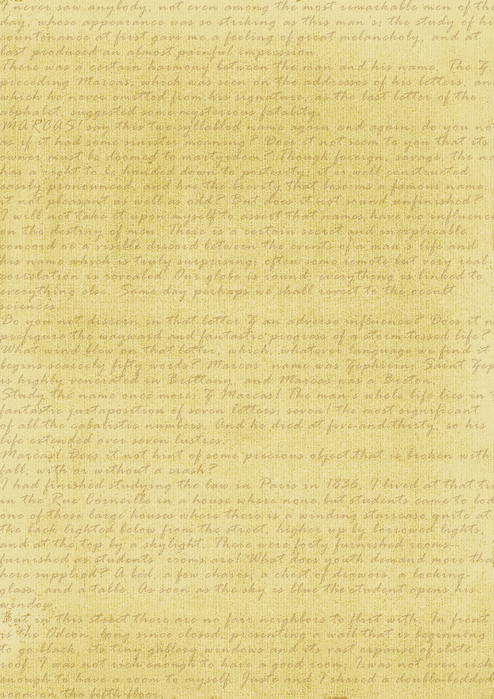 never saw anybody, not even among the most remarkable men of the
day, whose appearance was so striking as this man's; the study of his
countenance at first gave me a feeling of great melancholy, and at
last produced an almost painful impression.
There was a certain harmony between the man and his name. The Z.
preceding Marcas, which was seen on the addresses of his letters, and
which he never omitted from his signature, as the last letter of the
alphabet, suggested some mysterious fatality.
MARCAS! say this two-syllabled name again and again; do you not
as if it had some sinister meaning? Does it not seem to you that its
owner must be doomed to martyrdom? Though foreign, savage, the na
has a right to be handed down to posterity; it is well constructed
easily pronounced, and has the brevity that beseems a famous name
it not pleasant as well as odd? But does it not sound unfinished?
I will not take it upon myself to assert that names have no influence
on the destiny of men. There is a certain secret and inexplicable
concord or a visible discord between the events of a man's life and
his name which is truly surprising; often some remote but very real
correlation is revealed. Our globe is round; everything is linked to
everything else. Some day perhaps we shall revert to the occult
sciences.
Do you not discern in that letter Z an adverse influence? Does it n
prefigure the wayward and fantastic progress of a storm-tossed life?
What wind blew on that letter, which, whatever language we find it
begins scarcely fifty words? Marcas' name was Zephirin; Saint Zep
is highly venerated in Brittany, and Marcas was a Breton.
Study the name once more: Z Marcas! The man's whole life lies in
fantastic juxtaposition of seven letters; seven! the most significant
of all the cabalistic numbers. And he died at five-and-thirty, so his
life extended over seven lustres.
Marcas! Does it not hint of some precious object that is broken with
fall, with or without a crash?
I had finished studying the law in Paris in 1836. I lived at that ti
in the Rue Corneille in a house where none but students came to lod
one of those large houses where there is a winding staircase quite at
the back lighted below from the street, higher up by borrowed lights,
and at the top by a skylight. There were forty furnished rooms--
furnished as students' rooms are! What does youth demand more tha
here supplied? A bed, a few chairs, a chest of drawers, a looking-
glass, and a table. As soon as the sky is blue the student opens his
window.
But in this street there are no fair neighbors to flirt with. In front
is the Odeon, long since closed, presenting a wall that is beginning
to go black, its tiny gallery windows and its vast expanse of slate
roof. I was not rich enough to have a good room; I was not even rich
enough to have a room to myself. Juste and I shared a double-bedded
room on the fifth floor.